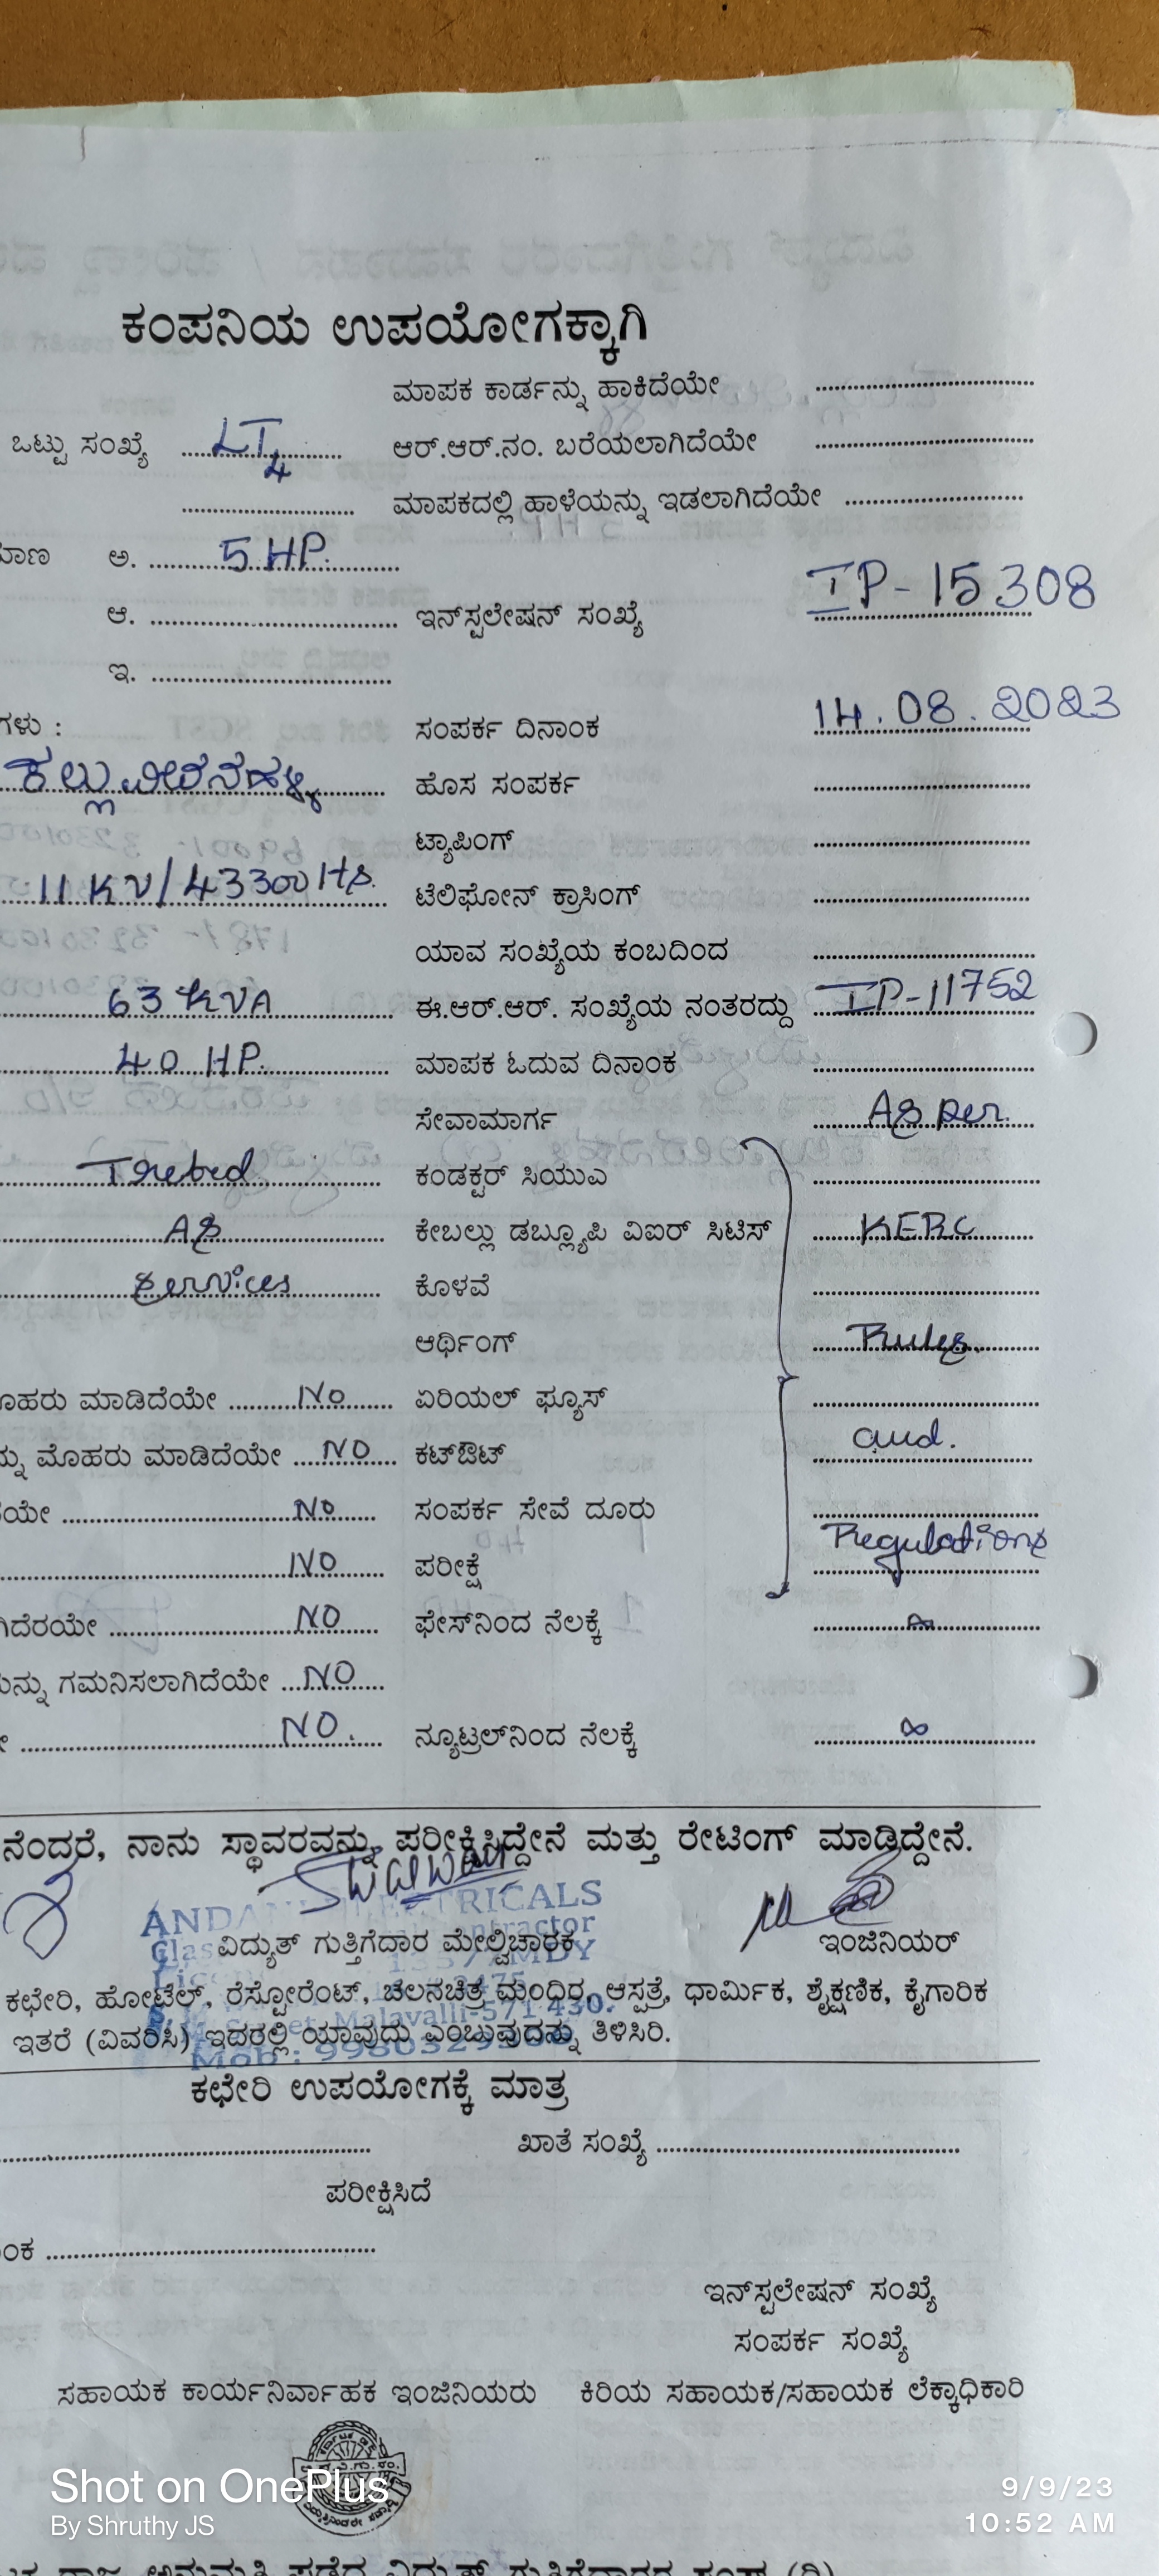 ಕಂಪನಿಯ ಉಪಯೋಗಕ್ಕಾಗಿ
ಮಾಪಕ ಕಾರ್ಡನ್ನು ಹಾಕಿದೆಯೇ
ಒಟ್ಟು ಸಂಖ್ಯೆ LT4 ಆರ್.ಆರ್.ನಂ. ಬರೆಯಲಾಗಿದೆಯೇ
ಮಾಪಕದಲ್ಲಿ ಹಾಳೆಯನ್ನು ಇಡಲಾಗಿದೆಯೇ
ಅ. 5 HP.
ಆ. ಇನ್‌ಸ್ಟಲೇಷನ್ ಸಂಖ್ಯೆ IP-15308
ಇ.
ಗಳು : ಸಂಪರ್ಕ ದಿನಾಂಕ 14.08.2023
ಹೊಸ ಸಂಪರ್ಕ
ಟ್ಯಾಪಿಂಗ್
11 KV/ ಟೆಲಿಫೋನ್ ಕ್ರಾಸಿಂಗ್
ಯಾವ ಸಂಖ್ಯೆಯ ಕಂಬದಿಂದ
63 KVA ಈ.ಆರ್.ಆರ್. ಸಂಖ್ಯೆಯ ನಂತರದ್ದು IP-11752
40 HP. ಮಾಪಕ ಓದುವ ದಿನಾಂಕ
ಸೇವಾಮಾರ್ಗ As per
ಕಂಡಕ್ಟರ್ ಸಿಯುಎ
As ಕೇಬಲ್ಲು ಡಬ್ಲ್ಯೂಪಿ ವಿಐರ್ ಸಿಟಿಸ್ KERC
services ಕೊಳವೆ
ಆರ್ಥಿಂಗ್ Rules
ಮಾಡಿದೆಯೇ No ಏರಿಯಲ್ ಫ್ಯೂಸ್
ಮೊಹರು ಮಾಡಿದೆಯೇ NO ಕಟ್‌ಔಟ್ and.
No ಸಂಪರ್ಕ ಸೇವೆ ದೂರು
NO ಪರೀಕ್ಷೆ Regulations
NO ಫೇಸ್‌ನಿಂದ ನೆಲಕ್ಕೆ
ಗಮನಿಸಲಾಗಿದೆಯೇ NO
NO. ನ್ಯೂಟ್ರಲ್‌ನಿಂದ ನೆಲಕ್ಕೆ ∞
ನೆಂದರೆ, ನಾನು ಸ್ಥಾವರವನ್ನು ಪರೀಕ್ಷಿಸಿದ್ದೇನೆ ಮತ್ತು ರೇಟಿಂಗ್ ಮಾಡಿದ್ದೇನೆ.
ವಿದ್ಯುತ್ ಗುತ್ತಿಗೆದಾರ ಮೇಲ್ವಿಚಾರಕ ಇಂಜಿನಿಯರ್
ಕಛೇರಿ, ಹೋಟೆಲ್, ರೆಸ್ಟೋರೆಂಟ್, ಚಲನಚಿತ್ರ ಮಂದಿರ, ಆಸ್ಪತ್ರೆ, ಧಾರ್ಮಿಕ, ಶೈಕ್ಷಣಿಕ, ಕೈಗಾರಿಕ
ಇತರೆ (ವಿವರಿಸಿ) ಇದರಲ್ಲಿ ಯಾವುದು ಎಂಬುವುದನ್ನು ತಿಳಿಸಿರಿ.
ಕಛೇರಿ ಉಪಯೋಗಕ್ಕೆ ಮಾತ್ರ
ಖಾತೆ ಸಂಖ್ಯೆ
ಪರೀಕ್ಷಿಸಿದೆ
ಇನ್‌ಸ್ಟಲೇಷನ್ ಸಂಖ್ಯೆ
ಸಂಪರ್ಕ ಸಂಖ್ಯೆ
ಸಹಾಯಕ ಕಾರ್ಯನಿರ್ವಾಹಕ ಇಂಜಿನಿಯರು ಕಿರಿಯ ಸಹಾಯಕ/ಸಹಾಯಕ ಲೆಕ್ಕಾಧಿಕಾರಿ
Shot on OnePlus
By Shruthy JS
9/9/23
10:52 AM